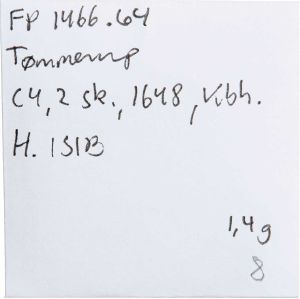 FP 1466.64
Tømmerup
C4, 2 sk., 1648, Kbh.
H. 151B
1,4g
8